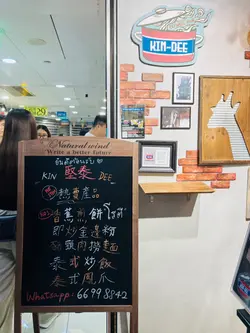 KIN-DEE
Naturalwind
Write a better future
ยินดีต้อนรับ
KIN 堅泰 DEE
熱賣產品
香蕉煎餅โรตี
即炒金邊粉
豬頸肉撈麵
泰式炒飯
泰式鳳爪
Whatsapp: 66998842